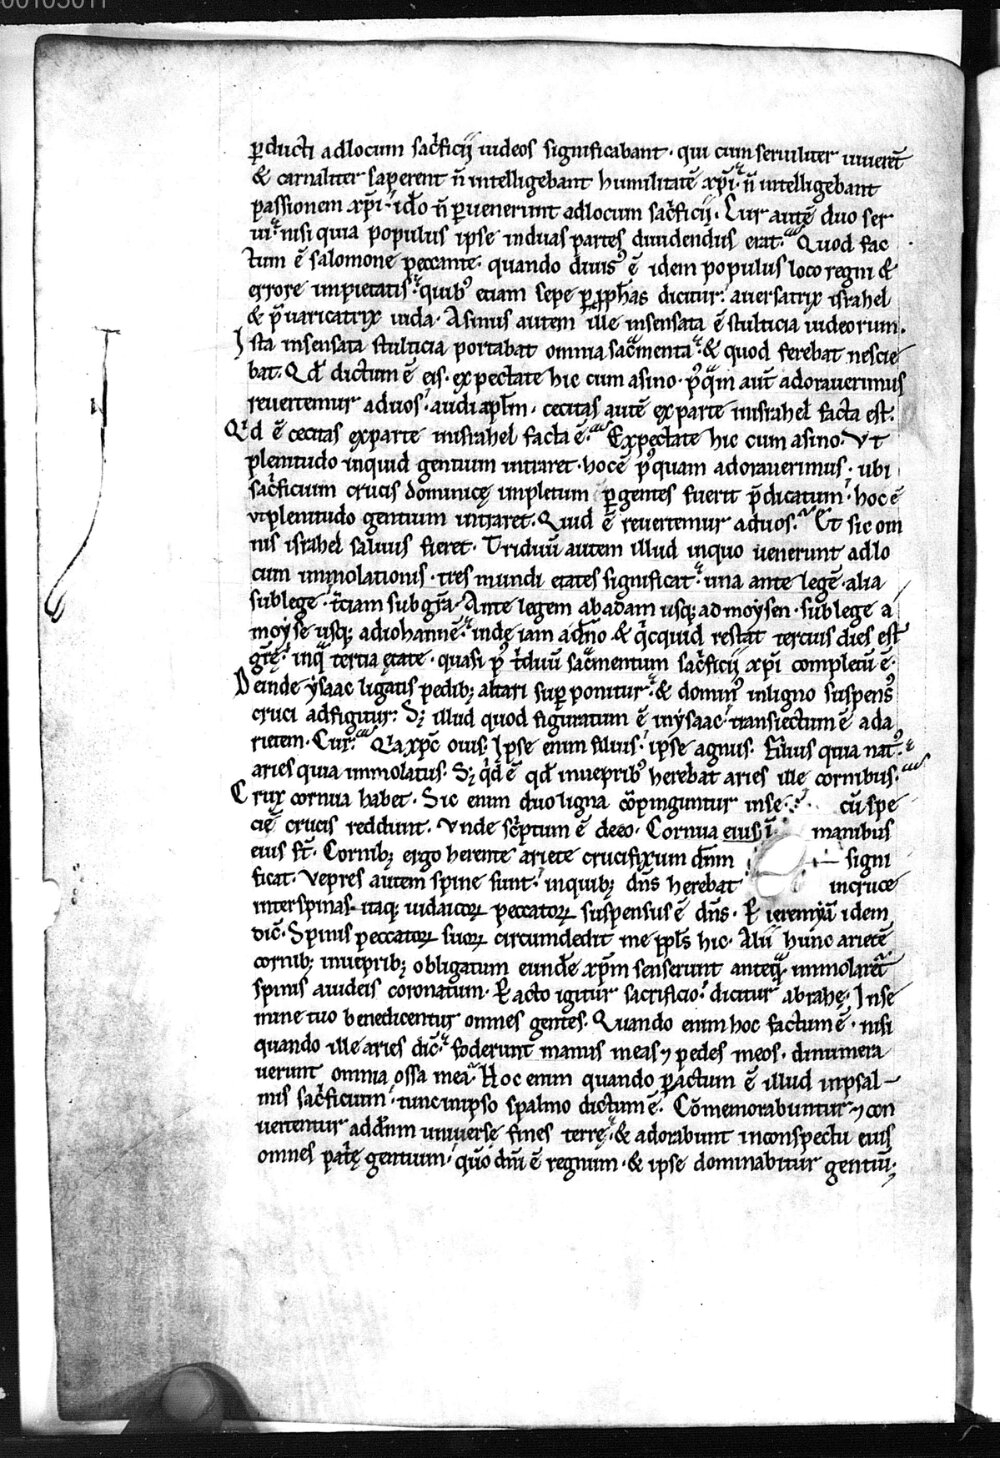 ꝑducti adlocum sac̅ficij iudeos significabant · qui cum seruiliter uiuere̅t
& carnaliter saperent n̅ intelligebant humilitate̅ xp̅i · n̅ intelligebant
passionem xp̅i · id̅o n̅ ꝑuenerunt adlocum sac̅ficij . Cur aute̅ duo ser
ui · nisi quia populus ipse induas partes diuidendus erat . Quod fac
tum e̅ salomone peccante · quando diuisꝰ e̅ idem populus loco regni &
errore impietatis · quibꝰ etiam sepe ꝑ p̅ph̅as dicitur · auersatrix israhel
& p̅uaricatrix iuda · Asinus autem ille insensata e̅ stulticia iudeorum .
Ista insensata stulticia portabat omnia sac̅menta · & quod ferebat nescie
bat . Qd̅ dictum e̅ eis · expectate hic cum asino · pꝰq̅m aut̅ adorauerimus
reuertemur aduos · audi apl̅m · cecitas aute̅ exparte inisrahel facta est .
Qid e̅ cecitas exparte inisrahel facta e̅ . Expectate hic cum asino . Vt
plenitudo inquid gentium intraret · hoc e̅ pꝰquam adorauerimus · ubi
sac̅ficium crucis dominicę impletum ꝑ gentes fuerit p̅dicatum · hoc e̅
vt plenitudo gentium intraret . Quid e̅ reuertemur aduos . Et sic om
nis israhel saluus fieret . Triduu̅ autem illud inquo uenerunt adlo
cum immolationis · tres mundi etates significat · una ante lege̅ · alia
sublege · tc̅iam sub gr̅a · Ante legem abadam usq; ad moysen · sub lege a
moyse usq; adiohanne̅ · indę iam ad̅no & qicquid restat tercius dies est
gr̅ę · inq̅ tertia ętate · quasi pꝰ t̅duu̅ sac̅mentum sac̅ficij xp̅i completu̅ e̅ .
Deinde ysaac ligatis pedib; altari suꝑponitur · & dominꝰ inligno suspensꝰ
cruci adfigitur . S; illud quod figuratum e̅ inysaac · transiectum e̅ ada
rietem . Cur . Qa xp̅c ouis . Ipse enim filius · ipse agnus . Filius quia natꝰ ·
aries quia immolatus . S; qid e̅ qd̅ inuepribꝰ herebat aries ille cornibus .
Crux cornua habet . Sic enim duo ligna co̅pinguntur inse · cu̅ spe
cie̅ crucis reddunt . Vnde sc̅ptum e̅ deeo . Cornua eius i̅ manibus
eius st̅ . Cornib; ergo herente ariete crucifixum dn̅m signi
ficat . Vepres autem spine sunt · inquib; dn̅s herebat incruce
interspinas itaq; iudaicoꝝ peccatoꝝ suspensus e̅ dn̅s . & ieremya̅ idem
dic̅ . Spinis peccatoꝝ suoꝝ circumdedit me ppl̅s hic . Alij hunc ariete̅
cornib; inueprib; obligatum eunde̅ xp̅m senserunt anteq̅ immolaret̅
spinis aiudeis coronatum . Facto igitur sacrificio · dicitur abrahę . Inse
mine tuo benedicentur omnes gentes . Quando enim hoc factum e̅ · nisi
quando ille aries dic̅ · foderunt manus meas ⁊ pedes meos · dinumera
uerunt omnia ossa mea . Hoc enim quando ꝑactum e̅ illud inpsal
mis sac̅ficium · tunc inipso spalmo dictum e̅ . Co̅memorabuntur ⁊ con
uertentur add̅num uniuersę fines terrę · & adorabunt inconspectu eius
omnes pat̅ę gentium · quo̅ dn̅i e̅ regnum · & ipse dominabitur gentiu̅ .